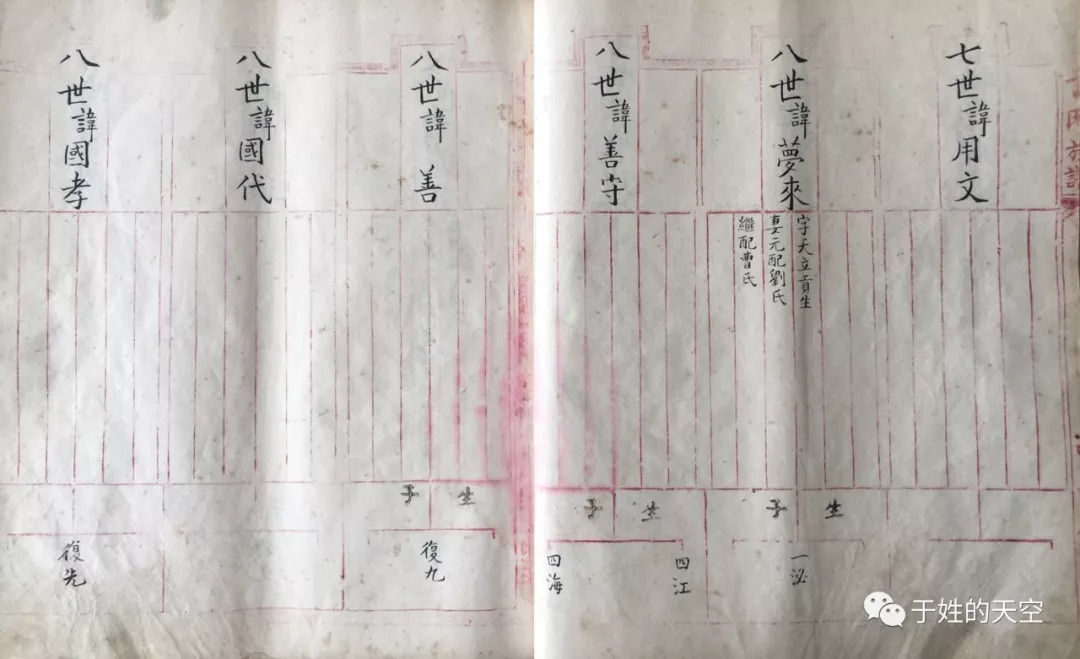 七世諱用文
八世諱夢來
字天立貢生
妻元配劉氏
繼配曹氏
生子
一泌
八世諱善守
生子
四江
四海
八世諱善
生子
復九
八世諱國代
八世諱國孝
復先
于姓的天空